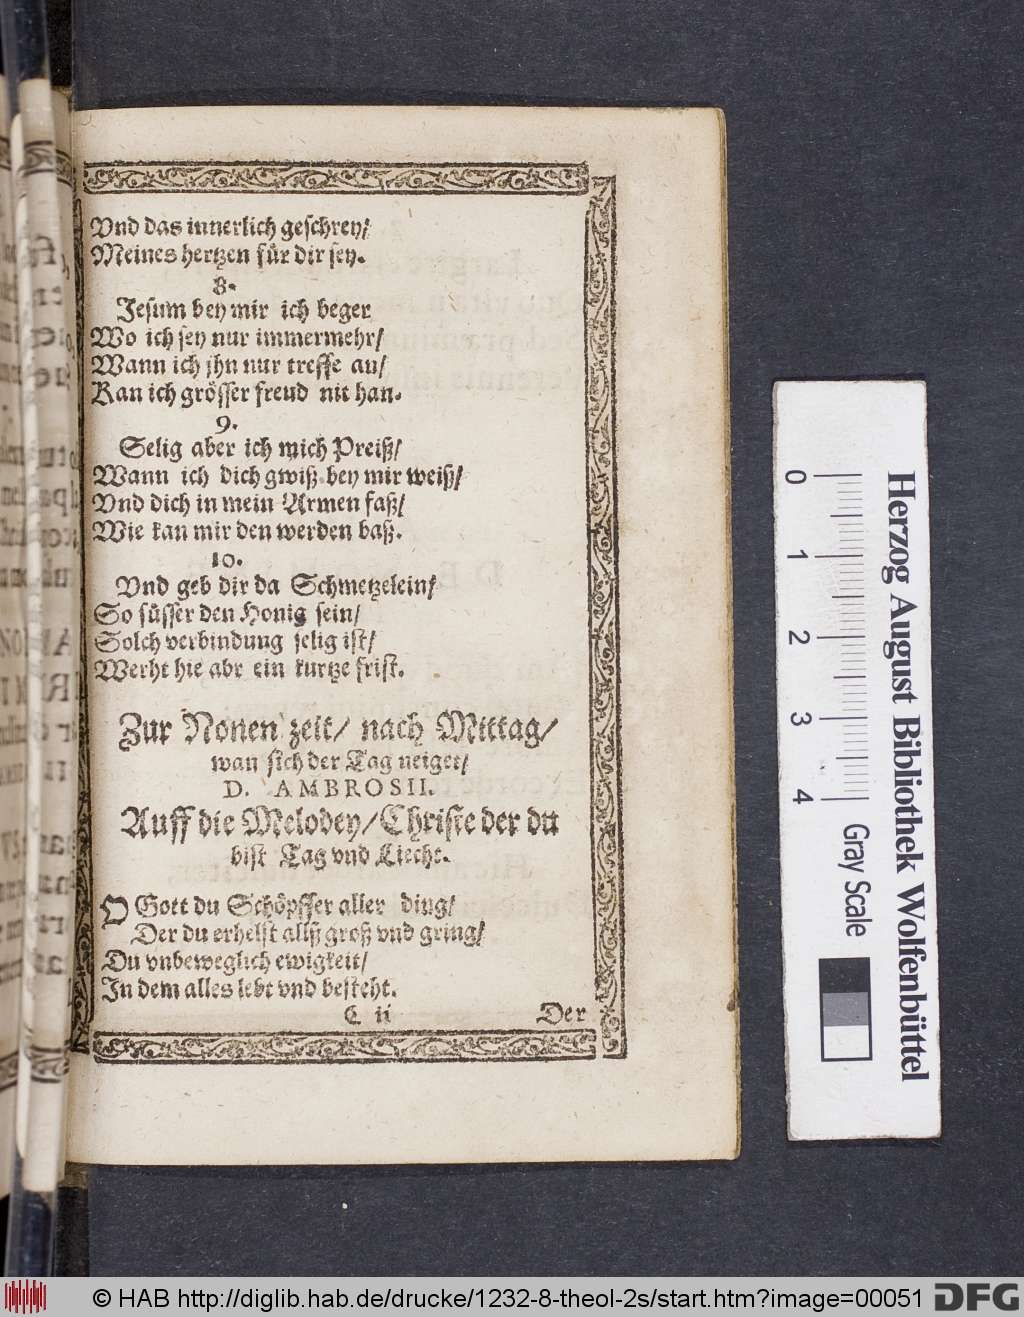 Vnd das innerlich geschrey/
Meines hertzen für dir sey.
8.
Jesum bey mir ich beger
Wo ich sey nur immermehr/
Wann ich jhn nur treffe au/
Kan ich grösser freud nit han.
9.
Selig aber ich mich Preiß/
Wann ich dich gwiß bey mir weiß/
Vnd dich in mein Armen faß/
Wie kan mir den werden baß.
10.
Vnd geb dir da Schmetzelein/
So süsser den Honig sein/
Solch verbindung selig ist/
Werht hie abr ein kurtze frist.
Zur Nonen zeit/ nach Mittag/
wan sich der Tag neiget/
D. AMBROSII.
Auff die Melodey/Christe der du
bist Tag vnd Liecht.
O Gott du Schöpffer aller ding/
Der du erhelst allß groß vnd gring/
Du vnbeweglich ewigkeit/
In dem alles lebt vnd besteht.
C ii Der
0 1 2 3 4
Herzog August Bibliothek Wolfenbüttel
Gray Scale
© HAB http://diglib.hab.de/drucke/1232-8-theol-2s/start.htm?image=00051
DFG